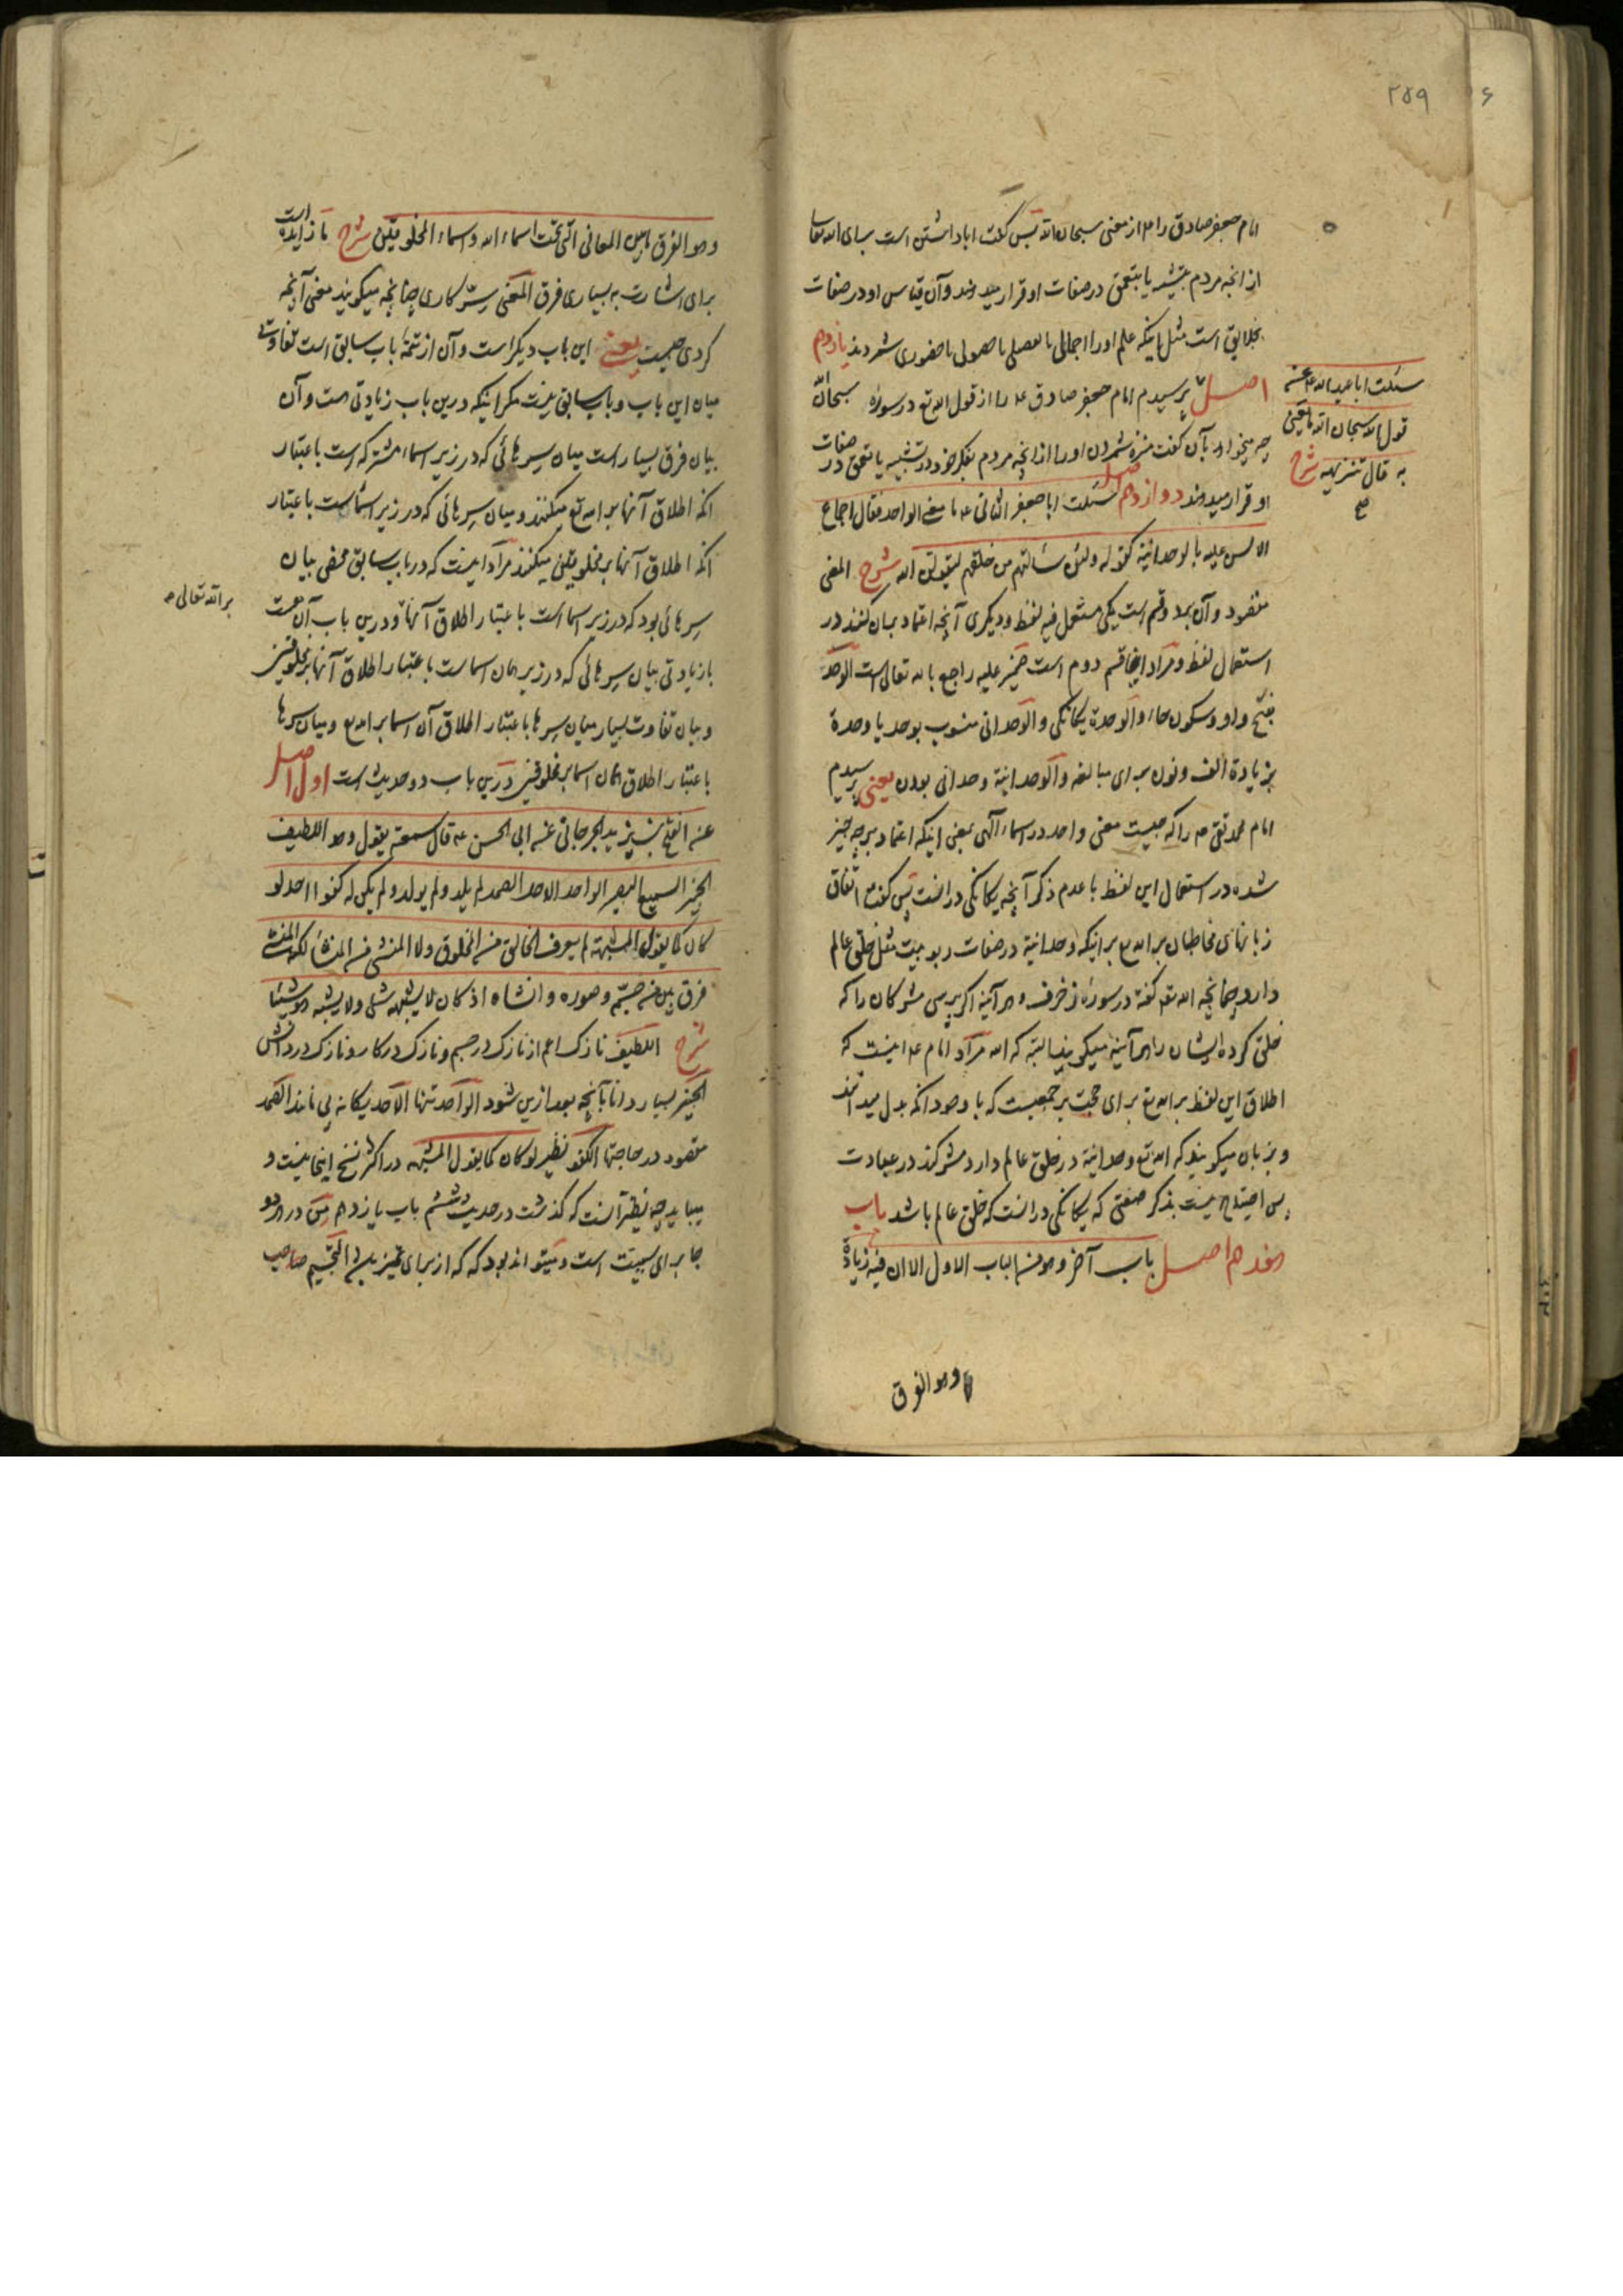 ۲۵۹
امام جعفر صادق را ع از معنی سبحان الله پس گفت ابا داشتن است برای الله تعالی
از آنچه مردم بتشبیه یا بتعمق در صفات او قرار میدهند و آن قیاس او در صفات
بخلایق است مثل اینکه علم او را اجمالی یا تفصیلی یا حصولی یا حضوری شمردند یازدهم
اصل پرسیدم امام جعفر صادق ع را از قول الله تع در سوره سبحان الله
چه میخواهد بآن گفت منزه شمردن او را از آنچه مردم بفکر خود در تشبیه یا تعمق در صفات
او قرار میدهند دوازدهم اصل سئلت ابا جعفر الثانی ع ما معنی الواحد فقال اجماع
الالسن علیه بالوحدانیة کقوله ولئن سئالتهم من خلقهم لیقولن الله شرح المعنی
مقصود و آن بر دو قسم است یکی مستعمل فیه لفظ و دیگری آنچه اعتماد بران کنند در
استعمال لفظ و مراد اینجا قسم دوم است ضمیر علیه راجع بالله تعالی است الوحد
بفتح واو و سکون حاء والوحدة یگانگی والوحدانی منسوب بوحد یا وحدة
بزیادة الف و نون برای مبالغه والوحدانیة وحدانی بودن یعنی پرسیدم
امام محمد تقی ع را که چیست معنی واحد در اسماء الهی بمعنی اینکه اعتماد بر چه چیز
شده در استعمال این لفظ با عدم ذکر آنچه یگانگی در انست پس گفت اتفاق
زبانهای مخاطبان بر الله تع بر اینکه وحدانیة در صفات ربوبیت مثل خلق عالم
دارد چنانچه الله تع گفته در سوره زخرف و هر آینه اگر پرسی مشرکان را که
خلق کرده ایشان را هر آینه میگویند البته که الله مراد امام ع اینست که
اطلاق این لفظ بر الله تع برای حجت بر جمعیست که با وجود انکه بدل میدانند
و بزبان میگویند که الله تع وحدانیة در خلق عالم دارد مشرکند در عبادت
پس احتیاج نیست بذکر صفتی که یگانگی در انست که خلق عالم باشد باب
هفدهم اصل باب آخر وهو من الباب الاول الا ان فیه زیادة
وهو الفرق
سئلت ابا عبد الله ع عن
قول الله سبحان الله ما یعنی
به قال تنزیهه شرح
وهو الفرق ما بین المعانی التی تحت اسماء الله و اسماء المخلوقین شرح ما زایده است
برای اشارت به بسیاری فرق المعنی سِرّ کاری چنانچه میگویند معنی آنچه
کردی چیست یعنی این باب دیگر است و آن از تتمه باب سابق است تفاوت
میان این باب و باب سابق نیست مگر اینکه درین باب زیادتی هست و آن
بیان فرق بسیار است میان سِرهائی که در زیر اسماء مشترکه است باعتبار
انکه اطلاق آنها بر الله تع میکنند و میان سِرهائی که در زیر اسماست باعتبار
انکه اطلاق آنها بر مخلوقین میکنند مراد اینست که در باب سابق محض بیان
سِرهائی بود که در زیر اسما است باعتبار اطلاق آنها و درین باب آن هست
با زیادتی بیان سِرهائی که در زیر همان اسماست باعتبار اطلاق آنها بر مخلوقین
و بیان تفاوت بسیار میان سِرها باعتبار اطلاق آن اسما بر الله تع و میان سِرها
باعتبار اطلاق همان اسما بر مخلوقین درین باب دو حدیث است اول اصل
عن الفتح بن یزید الجرجانی عن ابی الحسن ع قال سمعته یقول وهو اللطیف
الخبیر السمیع البصیر الواحد الاحد الصمد لم یلد ولم یولد ولم یکن له کفوا احد لو
کان کما یقول المشبهة لم یعرف الخالق من المخلوق ولا المنشئ من المنشأ لکنه المنشئ
فرق بین من جسّمه وصوره وانشأه اذ کان لا یشبهه شئ ولا یشبه هو شیئا
شرح اللطیف نازک اعم از نازک در جسم و نازک در کار و نازک در دانش
الخبیر بسیار دانا بآنچه بعد ازین شود الواحد تنها الاحد یگانه بی مانند الصمد
مقصود در حاجتها الکفو نظیر لو کان کما یقول المشبهه در اکثر نسخ اینجا نیست و
میباید چه نظیر آنست که گذشت در حدیث ششم باب یازدهم مِن در هر دو
جا برای سببیت است و میتواند بود که که از برای تمیز باشد التجسیم صاحب
بر الله تعالی ص